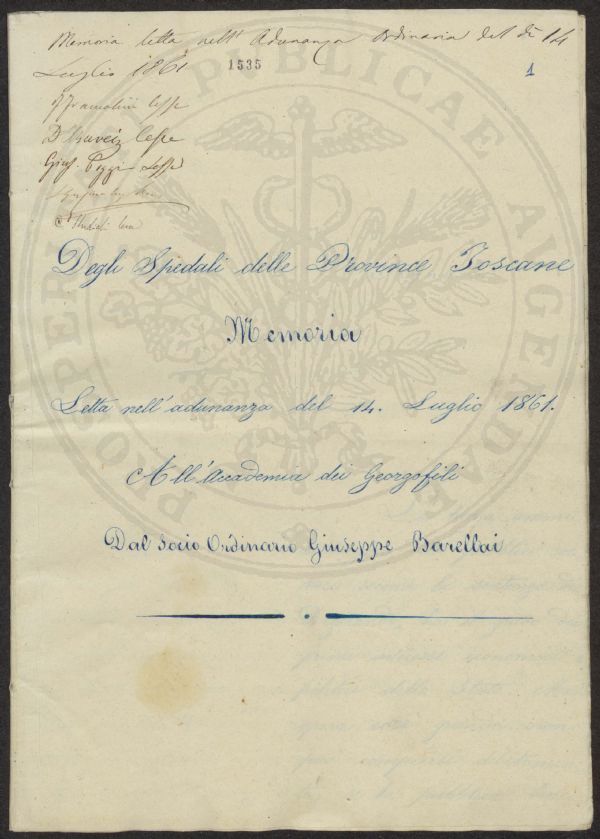 Memoria letta nell' Adunanza Ordinaria del dì 14
Luglio 1861
1535
1
Lesse
Lesse
Gius. Poggi Lesse
PROSPERITATI PUBLICAE AUGENDAE
Degli Spedali delle Province Toscane
Memoria
Letta nell'adunanza del 14. Luglio 1861.
All'Accademia dei Georgofili
Dal Socio Ordinario Giuseppe Barellai